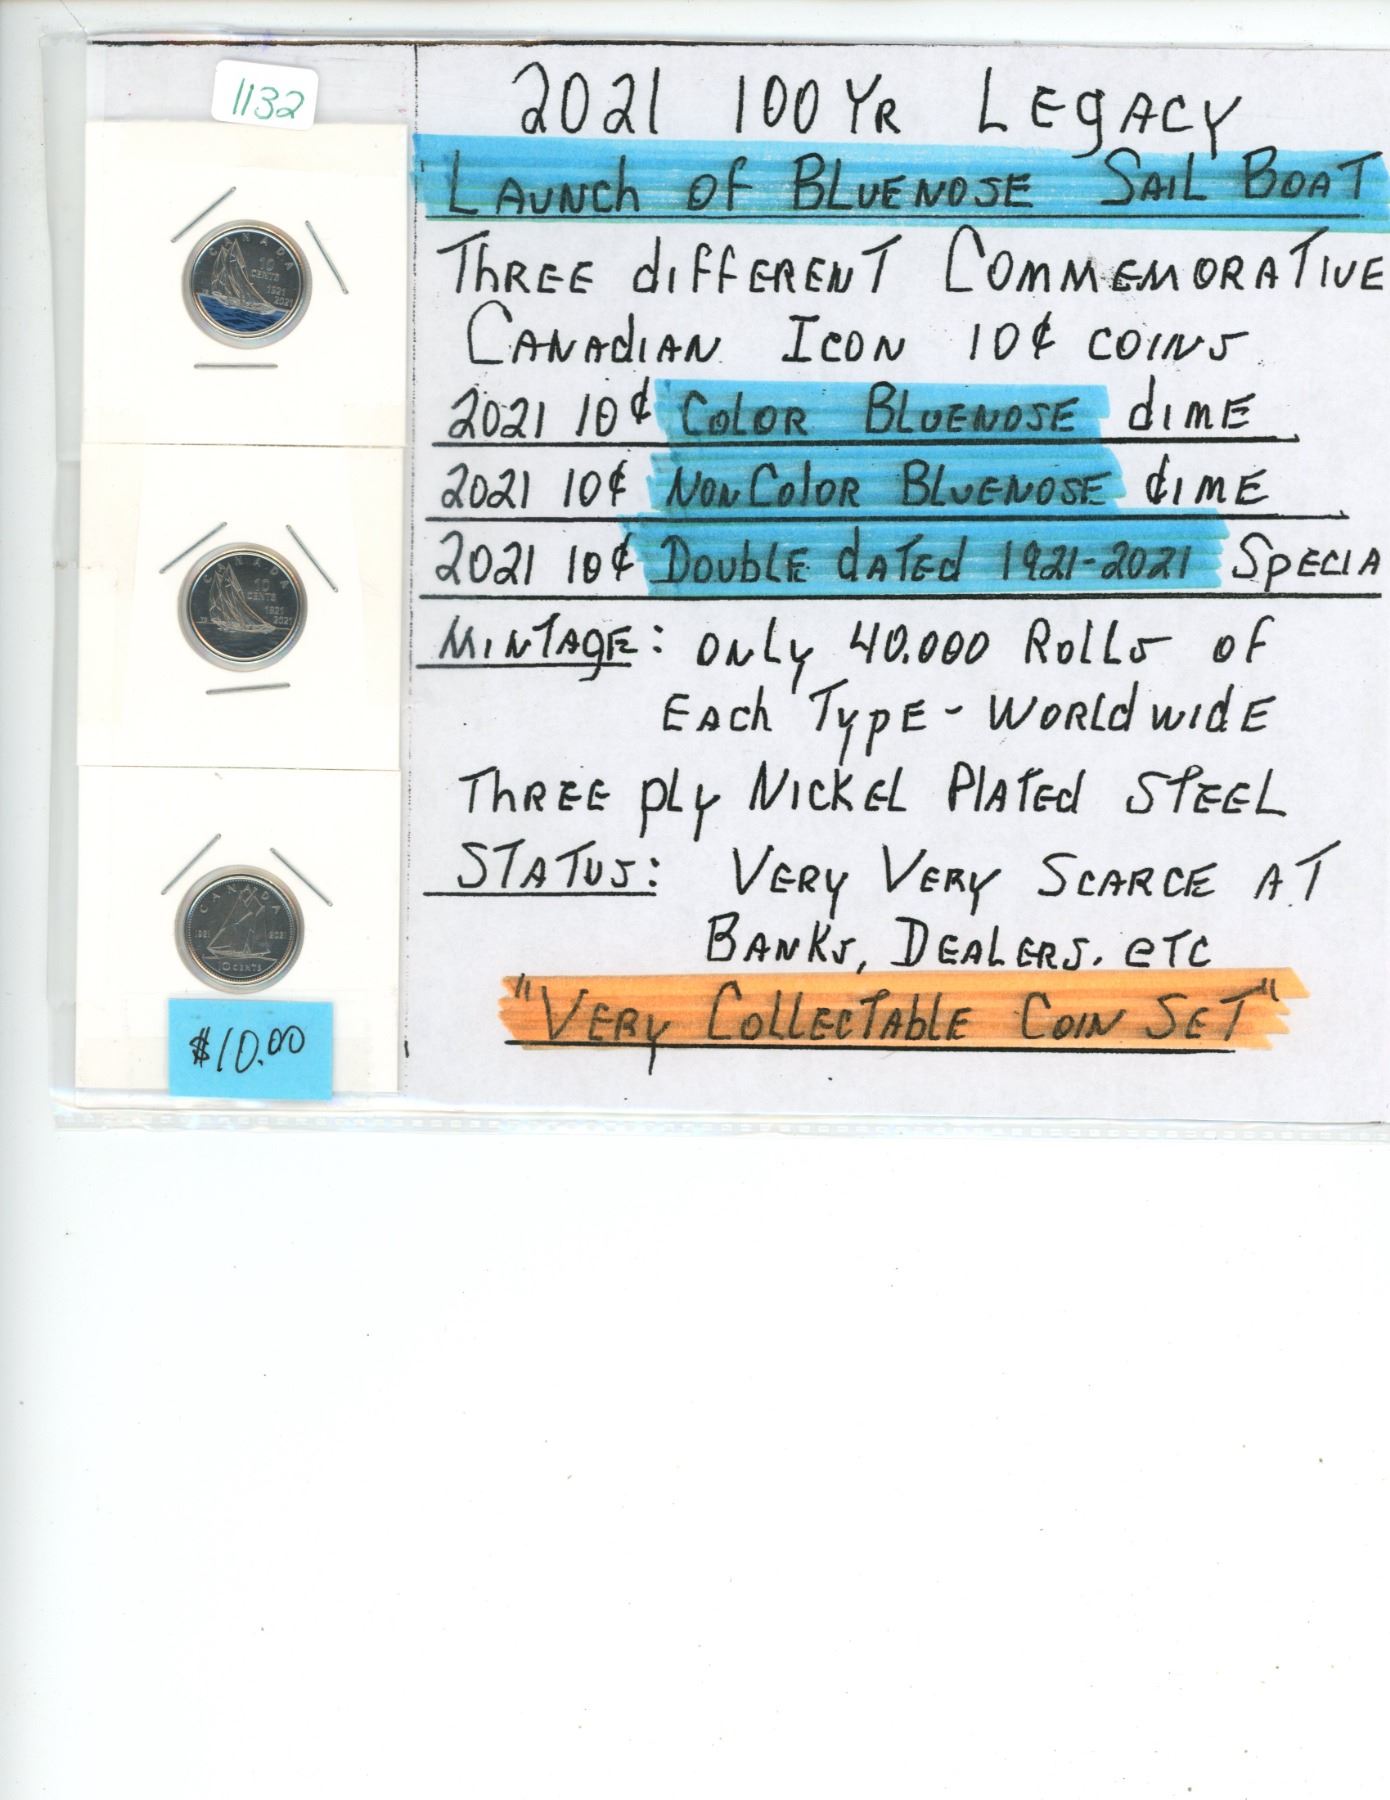 1132
2021 100 YR LEGACY
LAUNCH OF BLUENOSE SAIL BOAT
THREE dIFFERENT COMMEMORATIVE
CANAdIAN ICON 10¢ COINS
2021 10¢ COLOR BLUENOSE dIME
2021 10¢ NONCOLOR BLUENOSE dIME
2021 10¢ DOUBLE dATEd 1921-2021 SPECIA
MINTAGE: ONLY 40.000 ROLLS OF
EACH TYPE - WORLdWIdE
THREE PLY NICKEL PLATEd STEEL
STATUS: VERY VERY SCARCE AT
BANKS, DEALERS. ETC
"VERY COLLECTABLE COIN SET"
CANADA
10
CENTS
1921
2021
CANADA
10
CENTS
1921
2021
CANADA
1921 2021
10 CENTS
$10.00